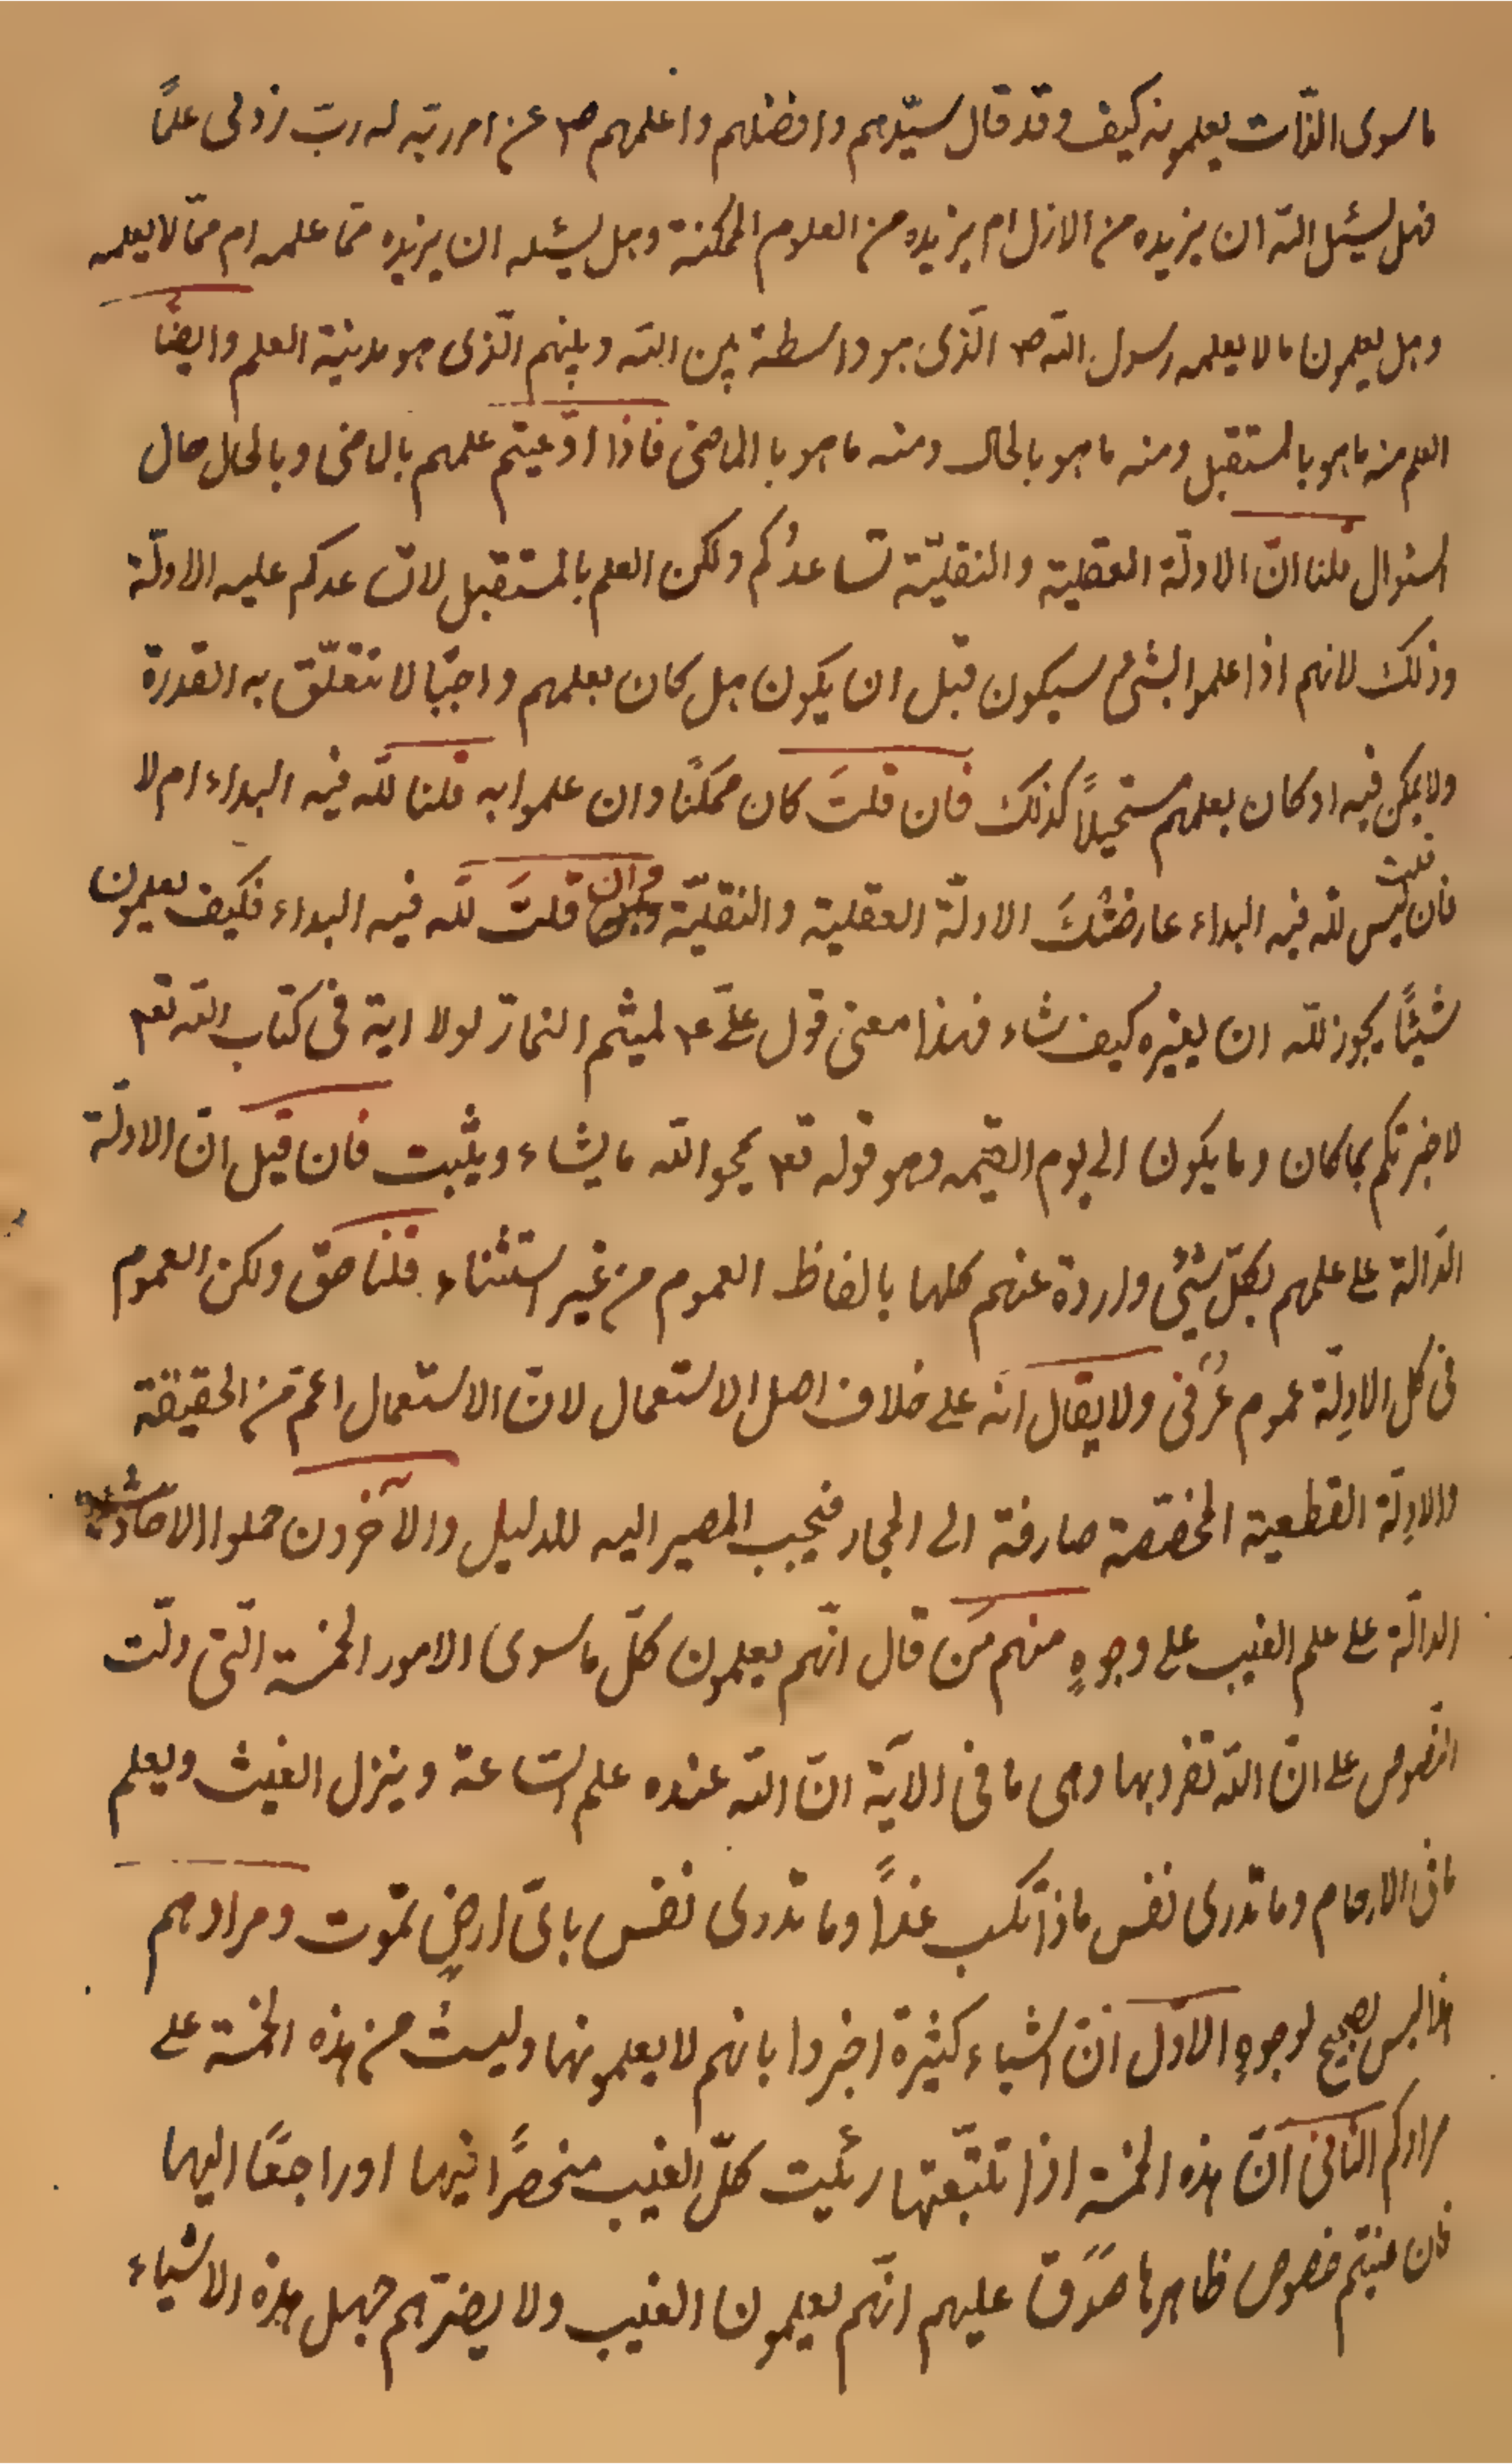 ما سوى الذّات يعلمونه كيف وقد قال سيّدهم وافضلهم واعلمهم ص٣ عن امر ربّه له ربّ زدنى علمًا
فهل يسئل الله ان يزيده من الازل ام يزيده من العلوم الممكنة وهل يسئله ان يزيده ممّا علمه ام ممّا لا يعلمه
وهل يعلمون ما لا يعلمه رسول الله ص٣ الّذى هو واسطة بين الله وبينهم الّذى هو مدينة العلم وايضًا
العلم منه ما هو بالمستقبل ومنه ما هو بالحال ومنه ما هو بالماضى فاذا ادّعيتم علمهم بالماضى وبالحال حال
السئوال قلنا انّ الادلّة العقلية والنقليّة تساعدُكم ولكن العلم بالمستقبل لا تساعدكم عليه الادلّة
وذلك لانهم اذا علموا بشئ سيكون قبل ان يكون هل كان بعلمهم واجبًا لا تتعلّق به القدرة
ولا يمكن فيه او كان بعلمهم مستحيلاً كذلك فان قلتَ كان ممكنًا وان علموا به قلنا للّه فيه البداء ام لا
فان قلت ليس للّه فيه البداء عارضتْكَ الادلّة العقلية والنقليّة وان قلتَ للّه فيه البداء فكيف يعلمون
شيئًا يجوز للّه ان يغيّره كيف شاء فهذا معنى قول علىّ ع٣ لميثم التمّار لولا اية فى كتاب الله تع٣
لاخبرتكم بما كان وما يكون الى يوم القيٰمه وهو قوله تع٣ يمحو الله ما يشاء ويثبت فان قيل انّ الادلّة
الدّالة على علمهم بكلّ شئ واردة عنهم كلها بالفاظ العموم من غير استثناء قلنا حقّ ولكن العموم
فى كل الادلّة عموم عُرفى ولا يقال انّه على خلاف اصل الاستعمال لانّ الاستعمال اعمّ من الحقيقة
والادلّة القطعية المخصّصة صارفة الى المجاز فيجب المصير اليه للدليل والآخرون حملوا الاحاديث
الدالّة على علم الغيب على وجوهٍ منهم مَن قال انّهم يعلمون كلّ ما سوى الامور الخمسة الّتى دلّت
النّصوص على انّ اللّه تفرد بها وهى ما فى الآية انّ اللّه عنده علم السّاعة وينزل الغيث ويعلم
ما فى الارحام وما تدرى نفس ماذا تكسب غدًا وما تدرى نفس باىّ ارضٍ تموت ومرادهم
هذا ليس بصحيح لوجوهٍ الاوّل انّ اشياء كثيرة اخبروا بانهم لا يعلمونها وليستْ من هذه الخمسة على
مرادكم الثانى انّ هذه الخمسة اذا تتبّعتها رئيت كلّ الغيب منحصرًا فيها او راجعًا اليها
فان عنيتم خصوص ظاهرها صَدَقَ عليهم انّهم يعلمون الغيب ولا يضرّهم جهل هذه الاشياء